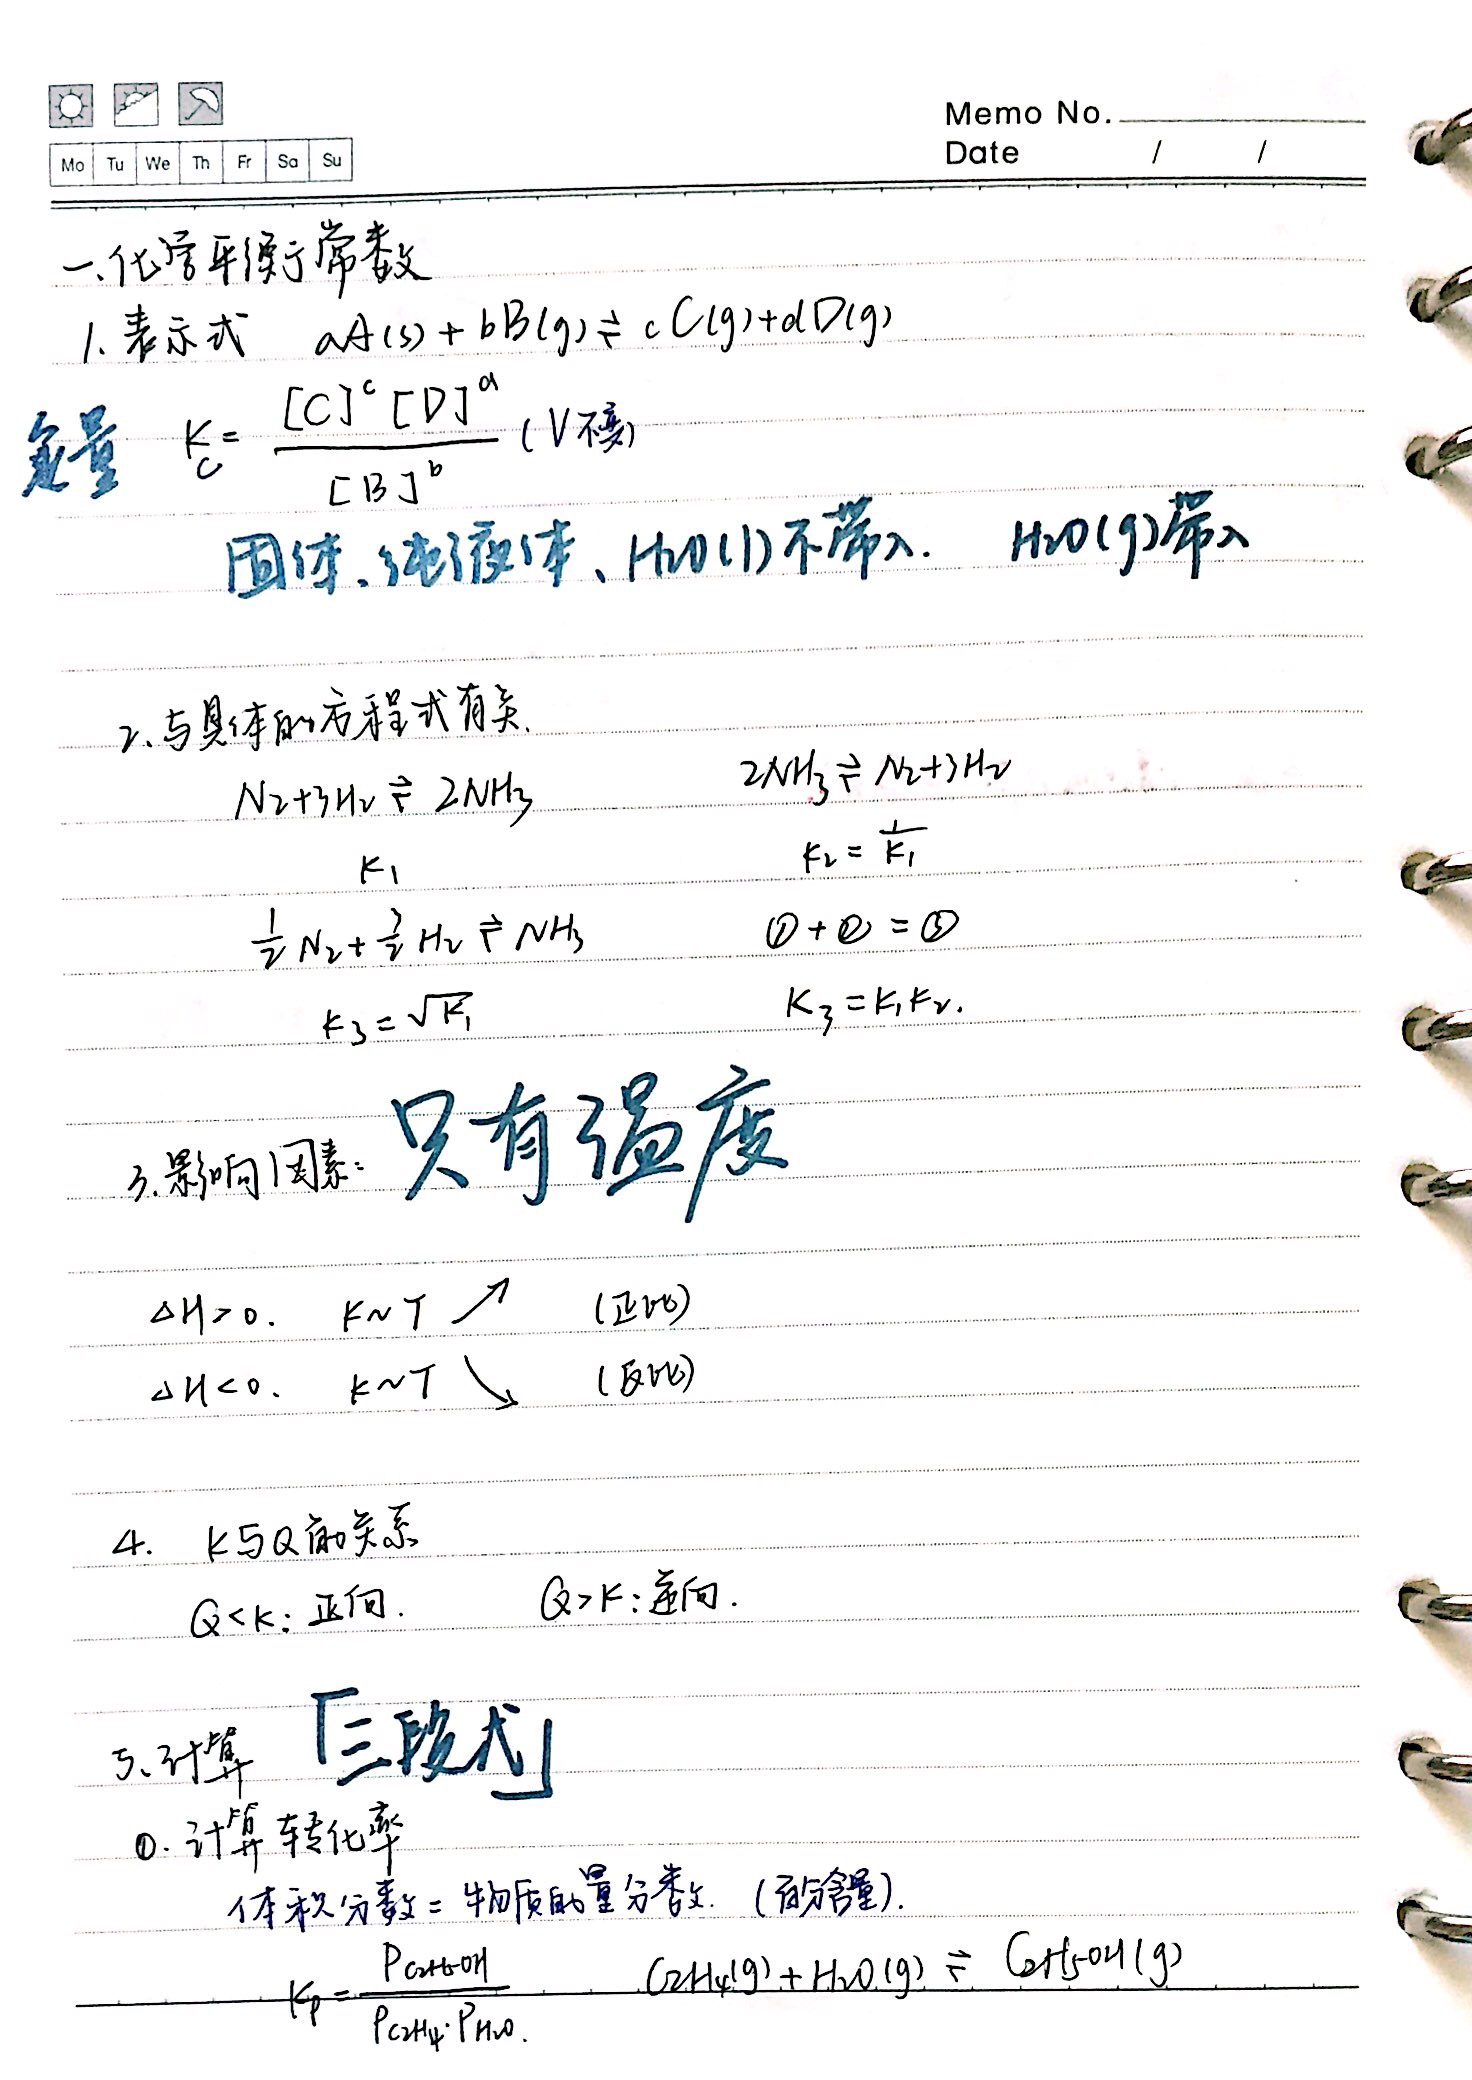 Memo No.
Mo Tu We Th Fr Sa Su
Date / /
一、化学平衡常数
1. 表示式 aA(s)+bB(g)⇌cC(g)+dD(g)
定量 Kc = [C]^c [D]^d / [B]^b (V不变)
固体、纯液体、H₂O(l)不带入. H₂O(g)带入
2、与具体的方程式有关.
N₂+3H₂⇌2NH₃ 2NH₃⇌N₂+3H₂
K₁ K₂=1/K₁
1/2 N₂+3/2 H₂⇌NH₃ ①+②=③
K₃=√K₁ K₃=K₁K₂.
3、影响因素: 只有温度
△H>0. K~T ↗ (正比)
△H<0. K~T ↘ (反比)
4. K与Q的关系
Q<K: 正向. Q>K: 逆向.
5、计算 「三段式」
①. 计算转化率
体积分数=物质的量分数. (百分含量).
Kp = P C₂H₅OH / P C₂H₄·P H₂O. C₂H₄(g)+H₂O(g)⇌C₂H₅OH(g)